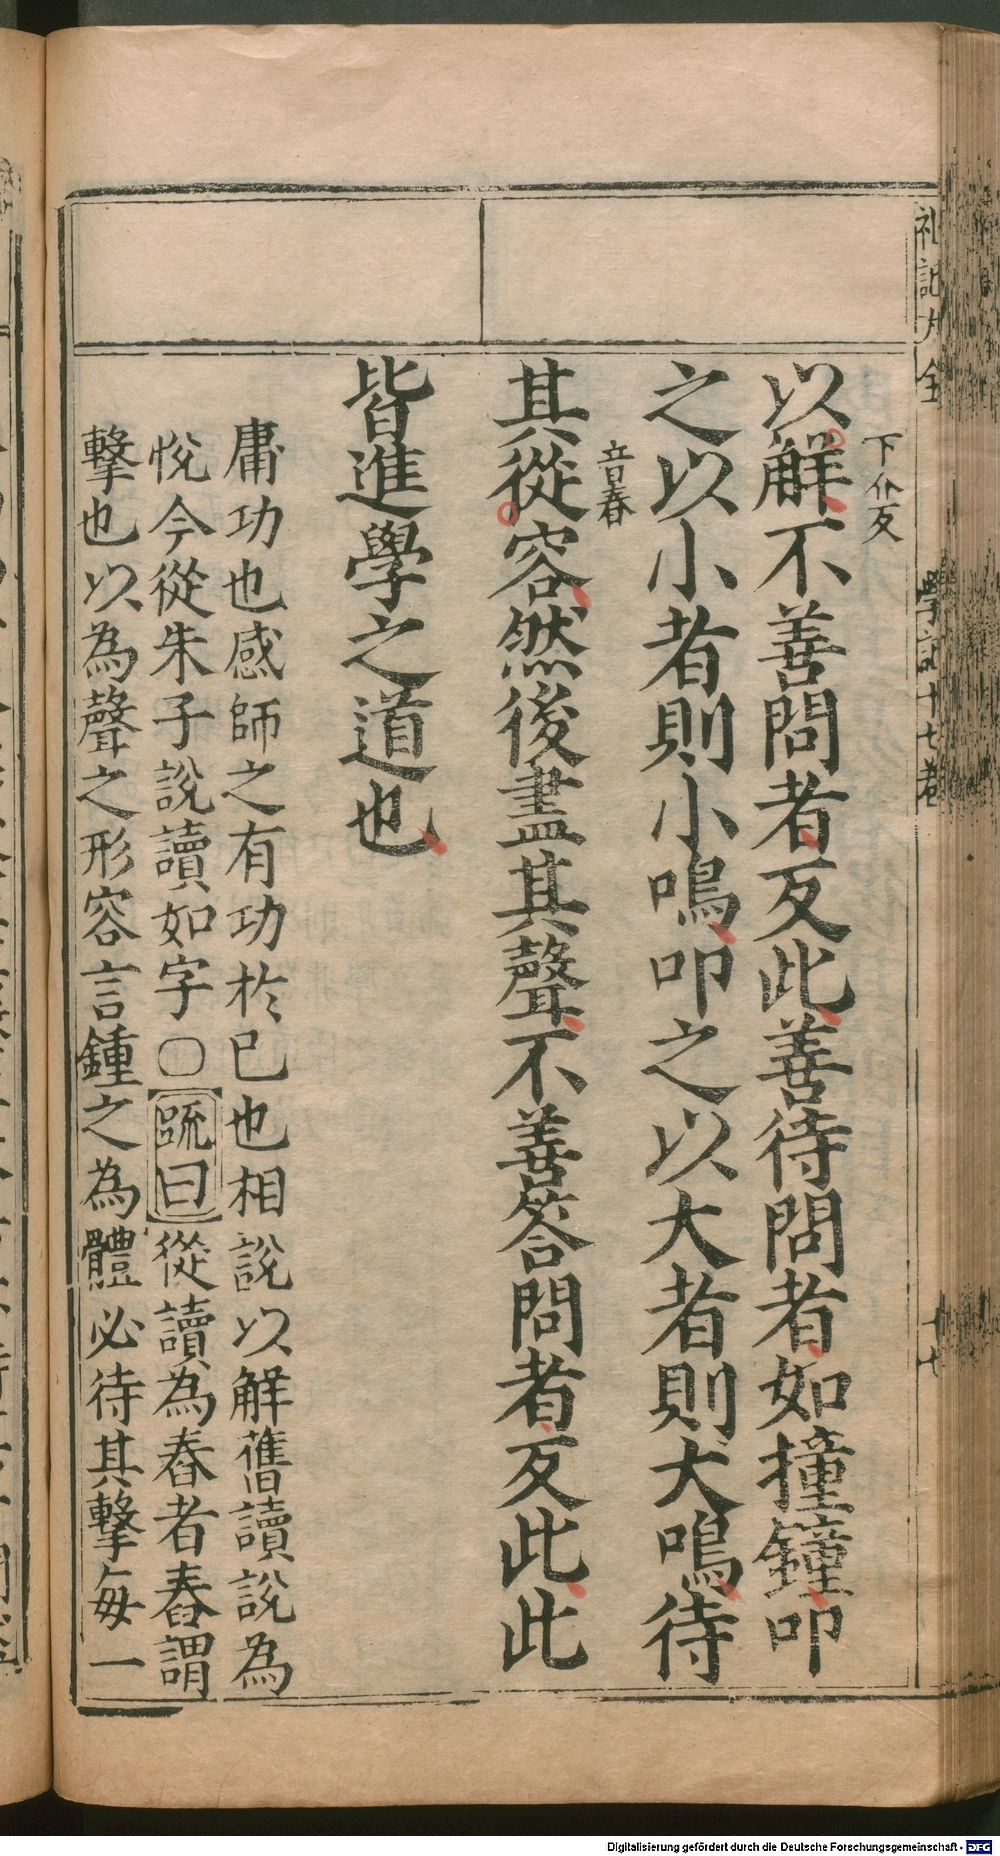 礼記大全
學記十七卷
十七
下仒反
以解不善問者反此善待問者如撞鐘叩
之以小者則小鳴叩之以大者則大鳴待
音舂
其從容然後盡其聲不善答問者反此此
皆進學之道也
庸功也感師之有功於己也相說以解舊讀說為
悅今從朱子說讀如字○疏曰從讀為舂者舂謂
擊也以為聲之形容言鍾之為體必待其擊每一
Digitalisierung gefördert durch die Deutsche Forschungsgemeinschaft - DFG